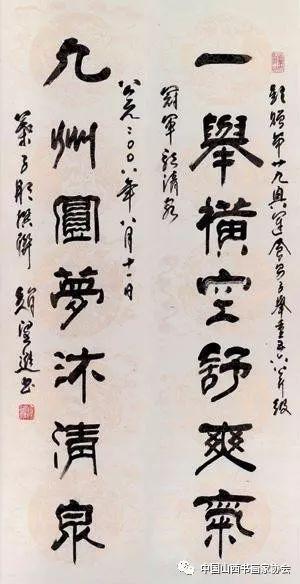 題贈第廿九奧運會男子舉重五六公斤級
冠軍龍清泉
一舉橫空舒爽氣
九州圓夢沐清泉
公元二〇〇八年八月十一日
撰聯 趙望進書
中国山西书画家协会